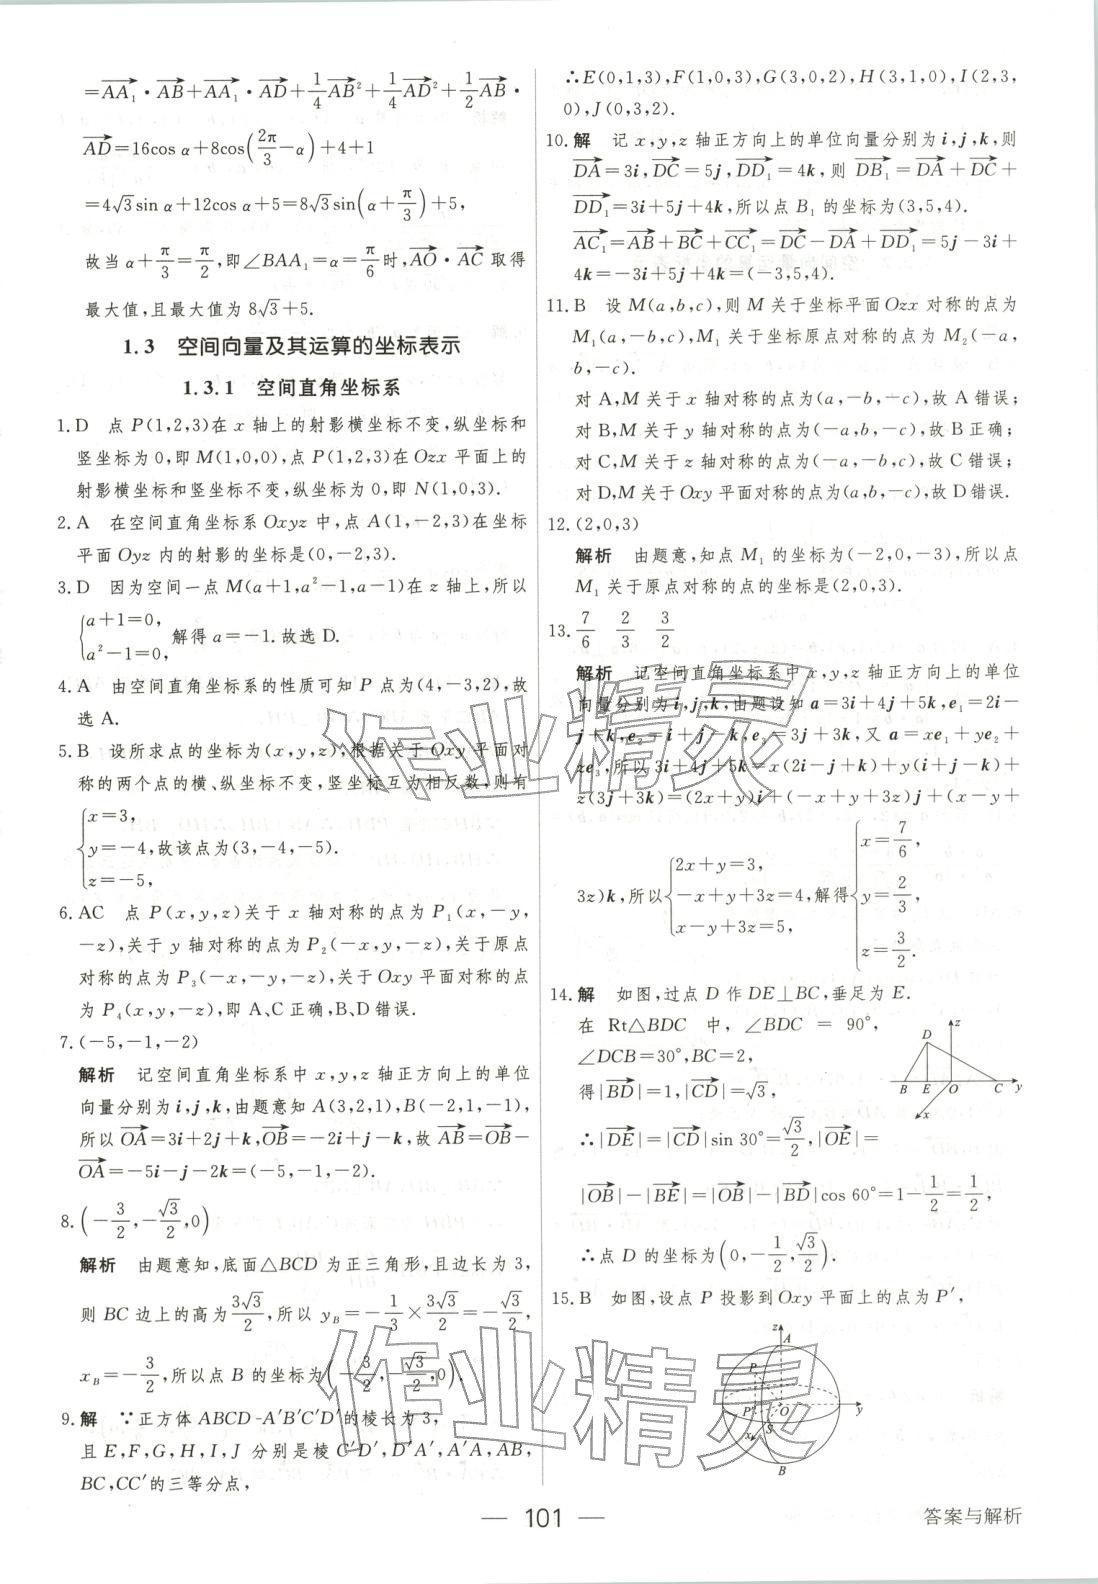 =AA₁·AB+AA₁·AD+1/4 AB²+1/4 AD²+1/2 AB·
AD=16cos α+8cos(2π/3-α)+4+1
=4√3sin α+12cos α+5=8√3sin(α+π/3)+5,
故当α+π/3=π/2,即∠BAA₁=α=π/6时,AO·AC取得
最大值,且最大值为8√3+5.
1.3 空间向量及其运算的坐标表示
1.3.1 空间直角坐标系
1.D 点P(1,2,3)在x轴上的射影横坐标不变,纵坐标和
竖坐标为0,即M(1,0,0),点P(1,2,3)在Ozx平面上的
射影横坐标和竖坐标不变,纵坐标为0,即N(1,0,3).
2.A 在空间直角坐标系Oxyz中,点A(1,-2,3)在坐标
平面Oyz内的射影的坐标是(0,-2,3).
3.D 因为空间一点M(a+1,a²-1,a-1)在z轴上,所以
{a+1=0,
a²-1=0, 解得a=-1.故选D.
4.A 由空间直角坐标系的性质可知P点为(4,-3,2),故
选A.
5.B 设所求点的坐标为(x,y,z),根据关于Oxy平面对
称的两个点的横、纵坐标不变,竖坐标互为相反数,则有
{x=3,
y=-4,故该点为(3,-4,-5).
z=-5,
6.AC 点P(x,y,z)关于x轴对称的点为P₁(x,-y,
-z),关于y轴对称的点为P₂(-x,y,-z),关于原点
对称的点为P₃(-x,-y,-z),关于Oxy平面对称的点
为P₄(x,y,-z),即A、C正确,B、D错误.
7.(-5,-1,-2)
解析 记空间直角坐标系中x,y,z轴正方向上的单位
向量分别为i,j,k,由题意知A(3,2,1),B(-2,1,-1),
所以OA=3i+2j+k,OB=-2i+j-k,故AB=OB-
OA=-5i-j-2k=(-5,-1,-2).
8.(-3/2,-√3/2,0)
解析 由题意知,底面△BCD为正三角形,且边长为3,
则BC边上的高为3√3/2,所以y_B=-1/3×3√3/2=-√3/2,
x_B=-3/2,所以点B的坐标为(-3/2,-√3/2,0).
9.解 ∵正方体ABCD-A'B'C'D'的棱长为3,
且E,F,G,H,I,J分别是棱C'D',D'A',A'A,AB,
BC,CC'的三等分点,
∴E(0,1,3),F(1,0,3),G(3,0,2),H(3,1,0),I(2,3,
0),J(0,3,2).
10.解 记x,y,z轴正方向上的单位向量分别为i,j,k,则
DA=3i,DC=5j,DD₁=4k,则DB₁=DA+DC+
DD₁=3i+5j+4k,所以点B₁的坐标为(3,5,4).
AC₁=AB+BC+CC₁=DC-DA+DD₁=5j-3i+
4k=-3i+5j+4k=(-3,5,4).
11.B 设M(a,b,c),则M关于坐标平面Ozx对称的点为
M₁(a,-b,c),M₁关于坐标原点对称的点为M₂(-a,
b,-c).
对A,M关于x轴对称的点为(a,-b,-c),故A错误;
对B,M关于y轴对称的点为(-a,b,-c),故B正确;
对C,M关于z轴对称的点为(-a,-b,c),故C错误;
对D,M关于Oxy平面对称的点为(a,b,-c),故D错误.
12.(2,0,3)
解析 由题意,知点M₁的坐标为(-2,0,-3),所以点
M₁关于原点对称的点的坐标是(2,0,3).
13.7/6 2/3 3/2
解析 记空间直角坐标系中x,y,z轴正方向上的单位
向量分别为i,j,k,由题设知a=3i+4j+5k,e₁=2i-
j+k,e₂=i+j-k,e₃=3j+3k,又a=xe₁+ye₂+
ze₃,所以3i+4j+5k=x(2i-j+k)+y(i+j-k)+
z(3j+3k)=(2x+y)i+(-x+y+3z)j+(x-y+
3z)k,所以{2x+y=3,-x+y+3z=4,x-y+3z=5,解得{x=7/6,y=2/3,z=3/2.
14.解 如图,过点D作DE⊥BC,垂足为E.
在Rt△BDC中,∠BDC=90°,
∠DCB=30°,BC=2,
得|BD|=1,|CD|=√3,
∴|DE|=|CD|sin 30°=√3/2,|OE|=
|OB|-|BE|=|OB|-|BD|cos 60°=1-1/2=1/2,
∴点D的坐标为(0,-1/2,√3/2).
z
D
B E O C y
x
15.B 如图,设点P投影到Oxy平面上的点为P',
z
A
P
P' O y
x S
B
作业精灵
作业精灵
101
答案与解析